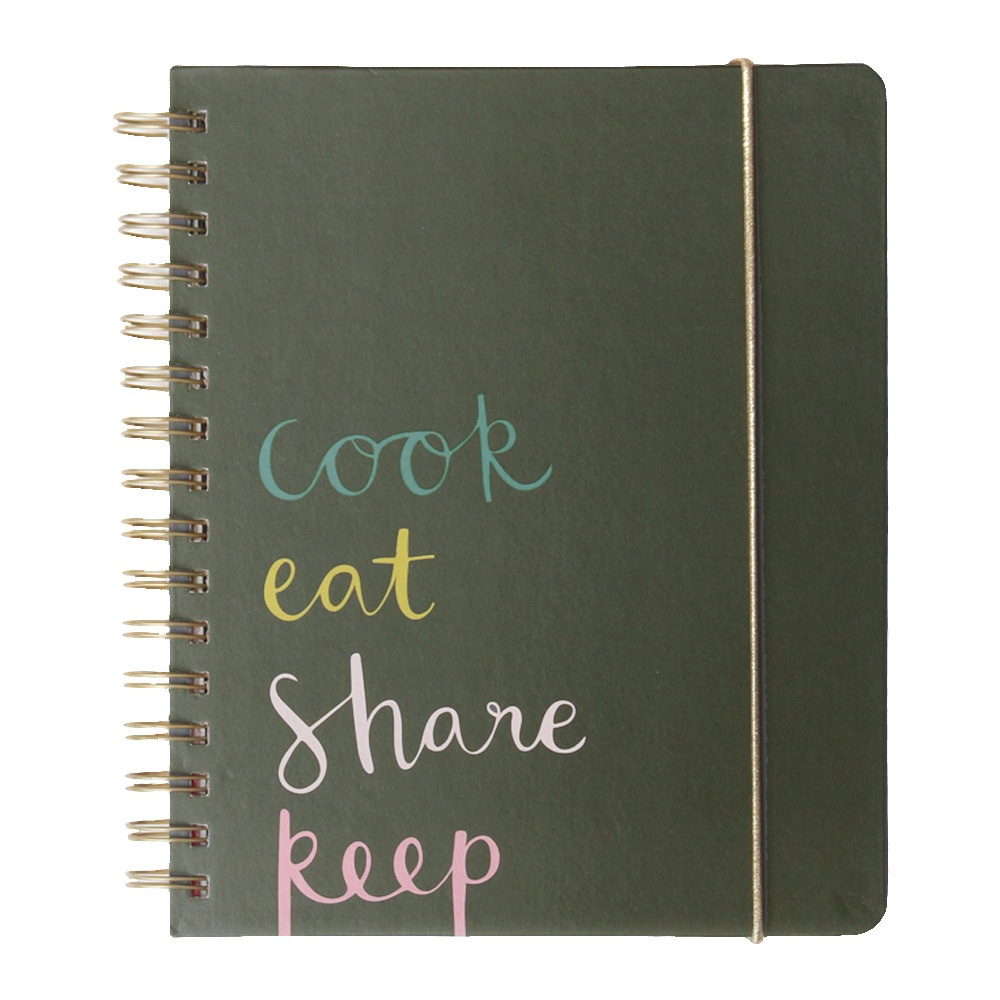 cook
eat
share
keep